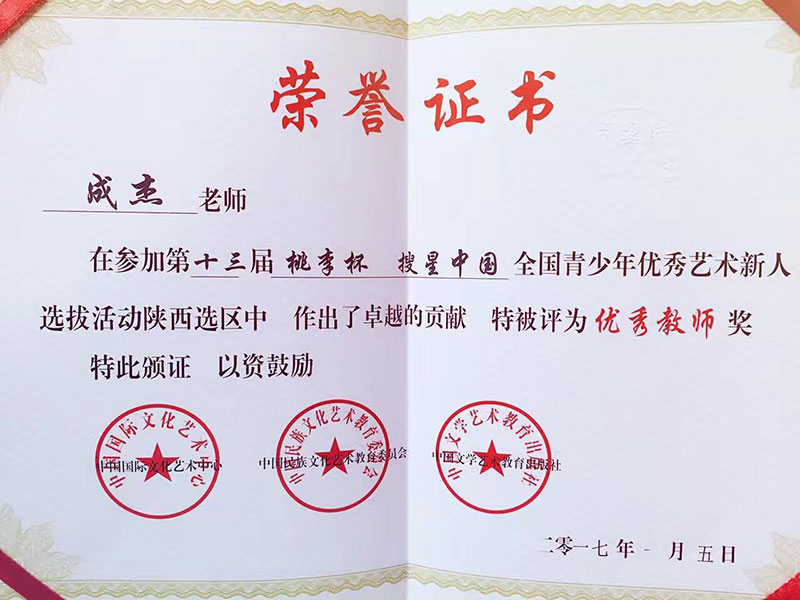 荣誉证书
成杰 老师
在参加第十三届 桃李杯 搜星中国 全国青少年优秀艺术新人
选拔活动陕西选区中 作出了卓越的贡献 特被评为 优秀教师 奖
特此颁证 以资鼓励
中国国际文化艺术中心
中国国际文化艺术中心
中国民族文化艺术教育委员会
中国民族文化艺术教育委员会
中国文学艺术教育出版社
中国文学艺术教育出版社
二零一七年一月五日